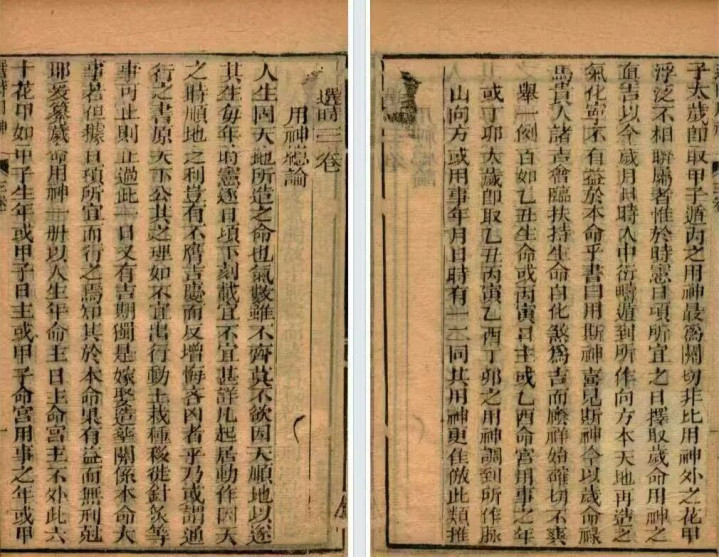 選時三卷
用神總論
人生因天地所造之命也氣數雖不齊莫不欲因天順地以遂
其生每年時憲逐日項下刻載宜不宜甚詳凡起居動作因天
之時順地之利豈有不膺吉慶而反增悔吝凶者乎乃或謂通
行之書原天下公共之理如不宜出行動土栽種移徙針灸等
事可止則止過此一日又有吉期獨是嫁娶造葬關係本命大
事若但據日項所宜而行之焉知其於本命果有益而無刑剋
耶爰纂歲命用神一册以人生年命主日主命宮主不外此六
十花甲如甲子生年或甲子日主或甲子命宮用事之年或甲
子太歲即取甲子遁丙之用神最為關切非比用神外之花甲
浮泛不相聯屬者惟於時憲日項所宜之日擇取歲命用神之
吉以今歲月與時人中衍疇遁到所作向方本天地再造之
氣化寧不有益於本命乎書曰用斯神喜見斯神今以歲命祿
馬貴人諸吉會臨扶持生命自化煞為吉而祥始確切不爽
舉一例百如乙丑生命或丙寅日主或乙酉命宮用事之年
或丁卯太歲即取乙丑丙寅乙酉丁卯之用神調到所作脉
山向方或用事年月日時有一二同其用神更佳倣此類推